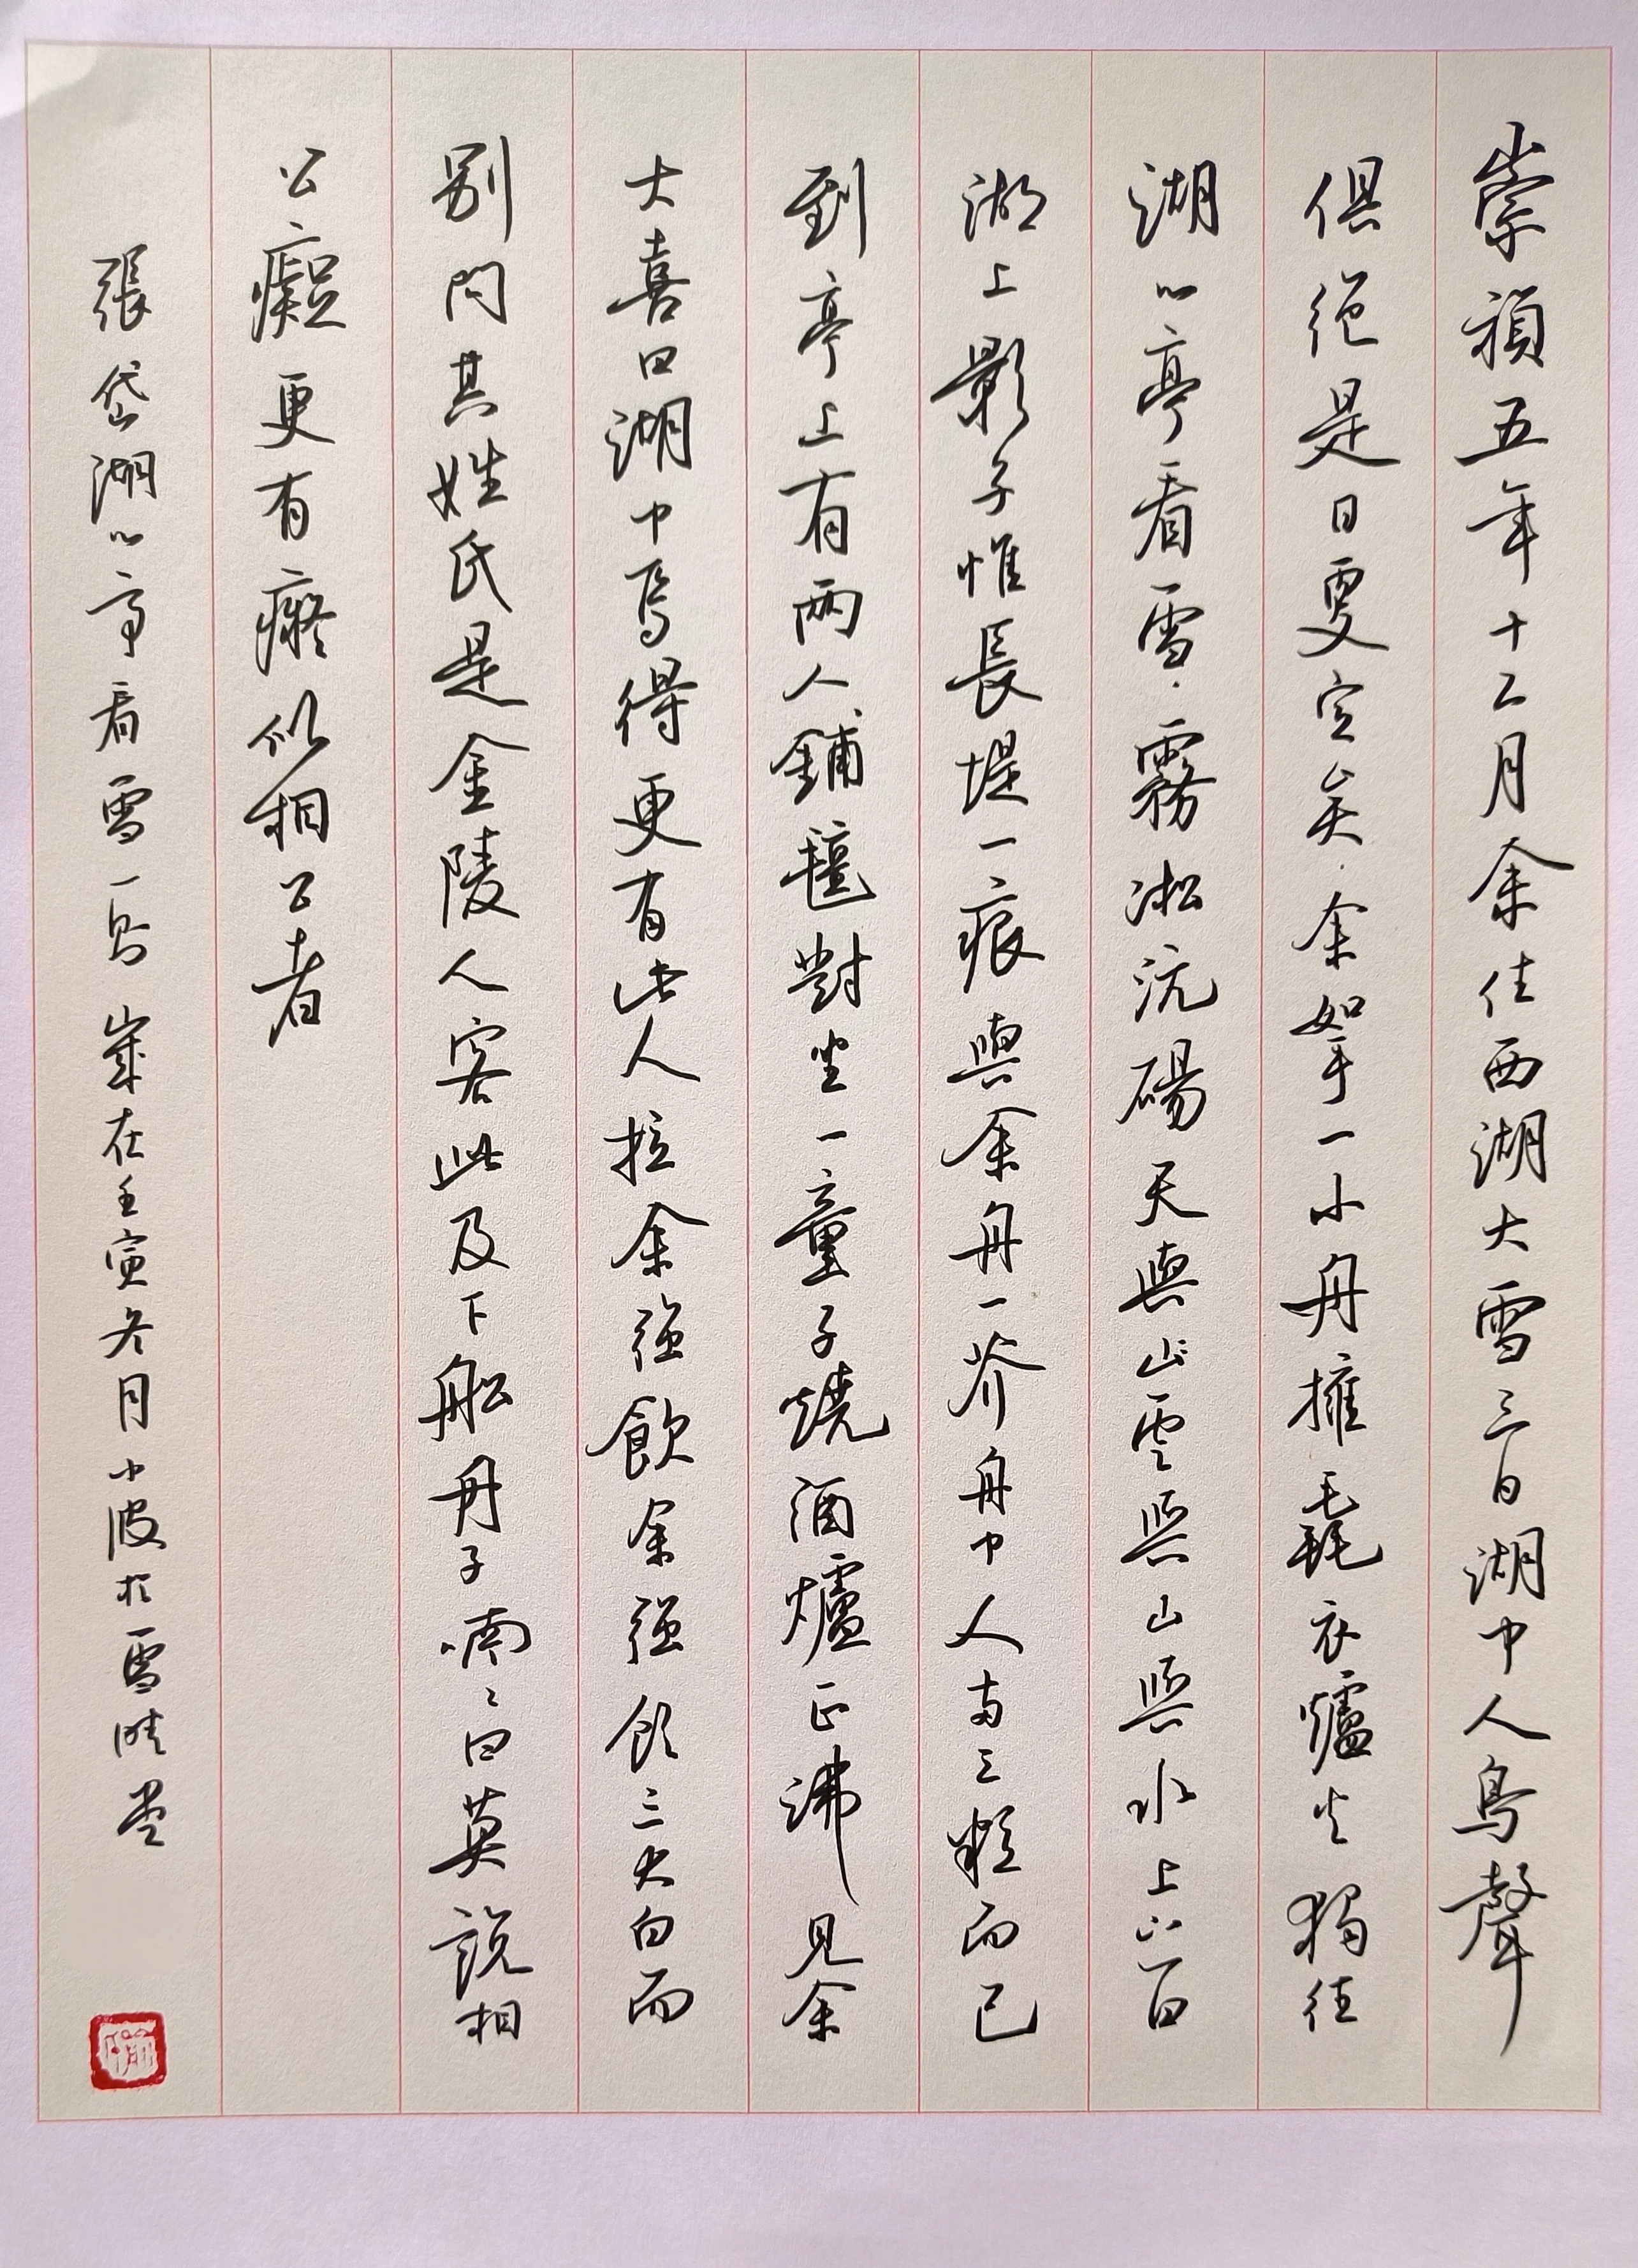 崇禎五年十二月余住西湖大雪三日湖中人鳥聲
俱絕是日更定矣余拏一小舟擁毳衣爐火獨往
湖心亭看雪霧淞沆碭天與山雲與山與水上下一白
湖上影子惟長堤一痕與余舟一芥舟中人兩三粒而已
到亭上有兩人鋪氈對坐一童子燒酒爐正沸見余
大喜曰湖中焉得更有此人拉余強飲余強飲三大白而
別問其姓氏是金陵人客此及下船舟子喃々曰莫說相
公癡更有癡似相公者
張岱湖心亭看雪一則歲在壬寅冬月小波於雪晴堂